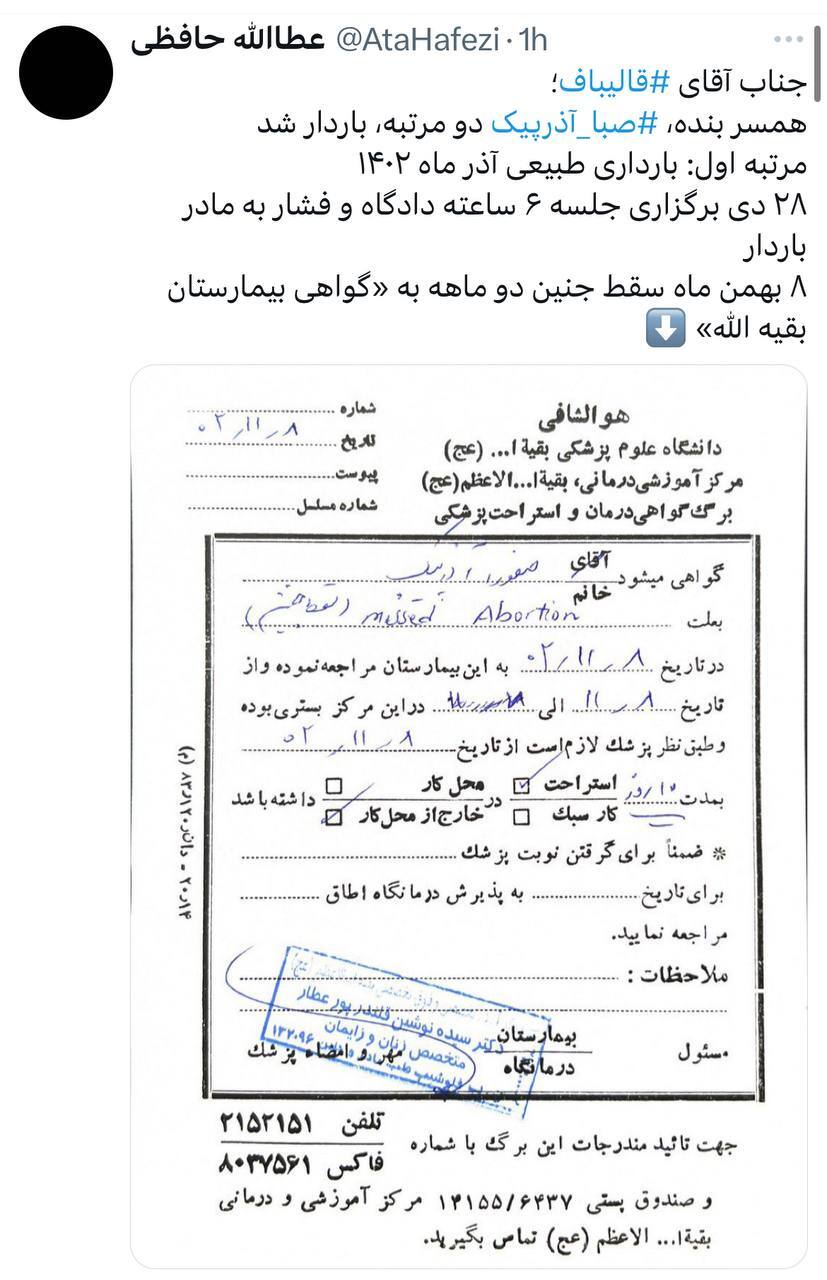 عطاالله حافظی @AtaHafezi · 1h
جناب آقای #قالیباف؛
همسر بنده، #صبا_آذرپیک دو مرتبه، باردار شد
مرتبه اول: بارداری طبیعی آذر ماه ۱۴۰۲
۲۸ دی برگزاری جلسه ۶ ساعته دادگاه و فشار به مادر
باردار
۸ بهمن ماه سقط جنین دو ماهه به «گواهی بیمارستان
بقیه الله» ⬇️
هوالشافی
دانشگاه علوم پزشکی بقیةا... (عج)
مرکز آموزشی درمانی، بقیةا...الاعظم(عج)
برگ گواهی درمان و استراحت پزشکی
شماره
تاریخ ۰۲/۱۱/۸
پیوست
شماره مسلسل
گواهی میشود آقای
خانم صفورا آذرپیک
بعلت Missed Abortion (سقط جنین)
در تاریخ ۰۲/۱۱/۸ به این بیمارستان مراجعه نموده و از
تاریخ ۱۱/۸ الی در این مرکز بستری بوده
و طبق نظر پزشک لازم است از تاریخ ۰۲/۱۱/۸
بمدت ۱۰ روز استراحت در محل کار داشته باشد
کار سبک خارج از محل کار
* ضمناً برای گرفتن نوبت پزشک
برای تاریخ به پذیرش درمانگاه اطاق
مراجعه نمایید.
ملاحظات :
دکتر سیده نوشین قلندرپور عطار
متخصص زنان و زایمان
مسئول بیمارستان
درمانگاه مهر و امضاء پزشک
جهت تائید مندرجات این برگ با شماره تلفن ۲۱۵۲۱۵۱
فاکس ۸۰۳۷۵۶۱
و صندوق پستی ۱۴۱۵۵/۶۴۳۷ مرکز آموزشی و درمانی
بقیةا... الاعظم (عج) تماس بگیرید.